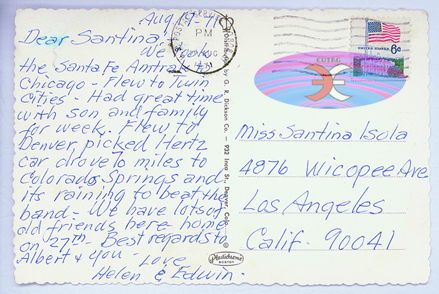 Aug 19-71
Dear Santina,
We took
the Santa Fe Amtrak to
Chicago - Flew to Twin
Cities - Had great time
with son and family
for week. Flew to
Denver, picked Hertz
car drove 70 miles to
Colorado Springs and
its raining to beat the
band - We have lots of
old friends here - home
on 27th - Best regards to
Albert & you - Love
Helen & Edwin.
PM
AUG
UNITED STATES
6c
by O. R. Dickson Co. - 932
Denver, Colo.
Plastichrome
BOSTON
Miss Santina Isola
4876 Wicopee Ave
Los Angeles
Calif. 90041